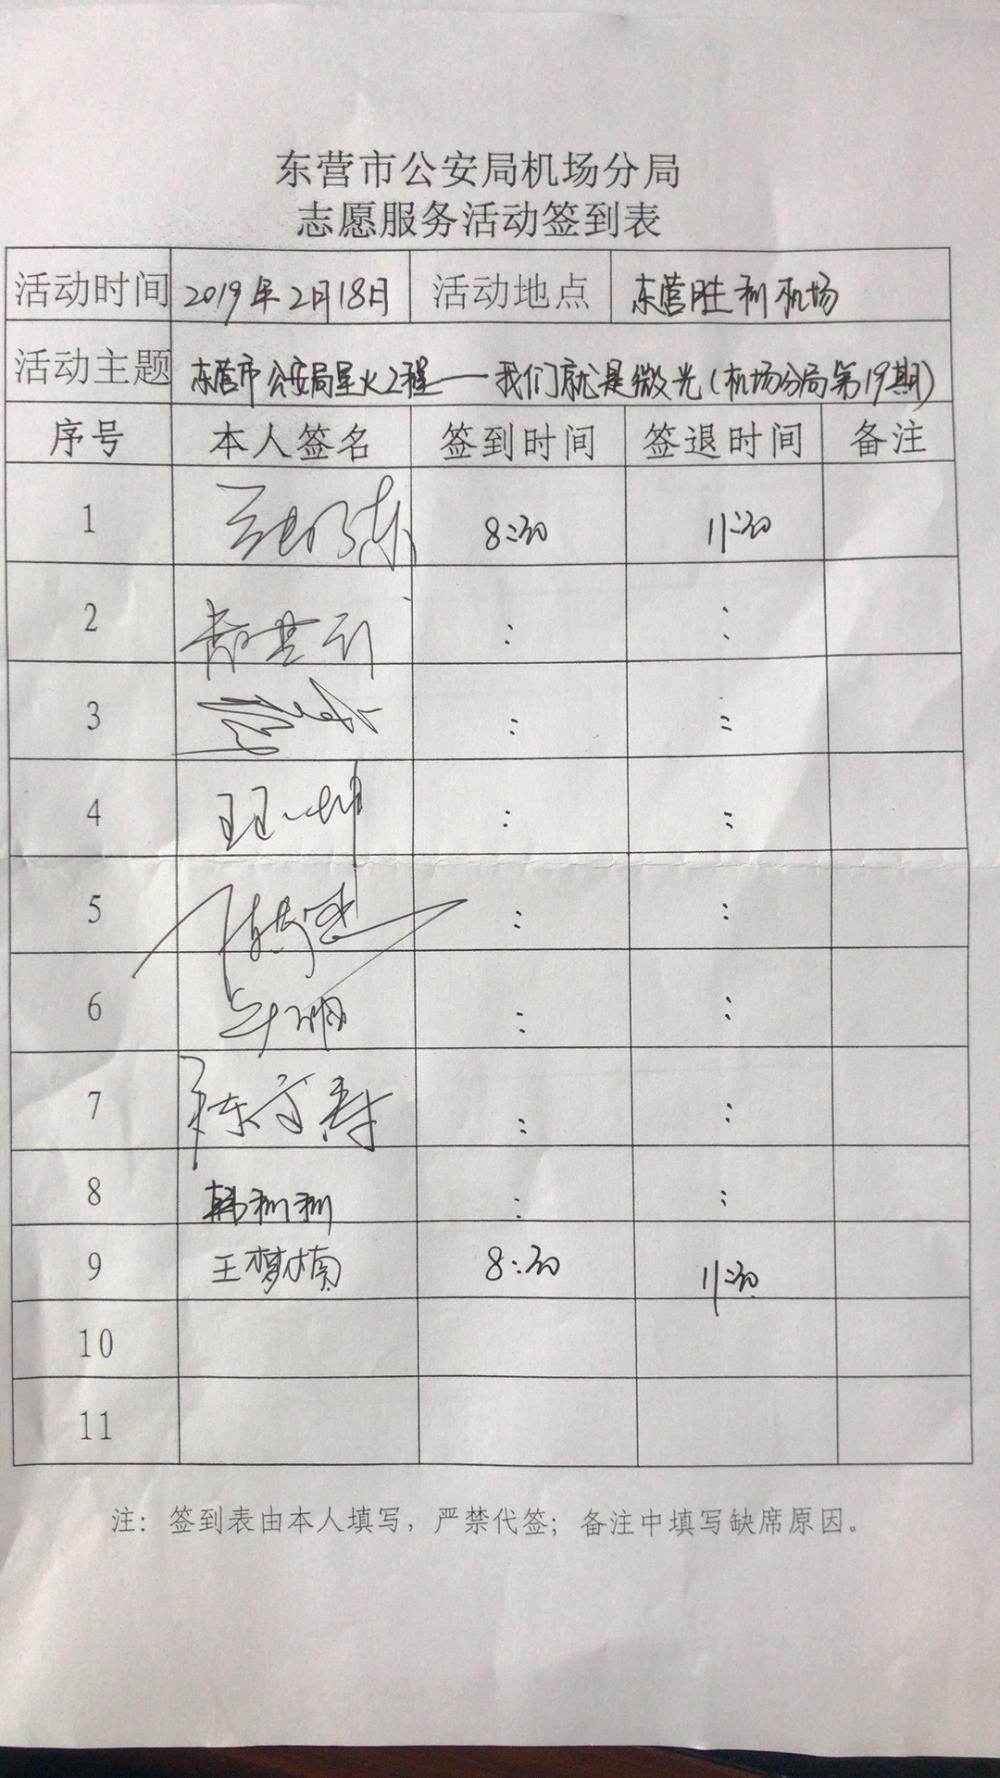 东营市公安局机场分局
志愿服务活动签到表
活动时间 2019年2月18日 活动地点 东营胜利机场
活动主题 东营市公安局星火工程——我们就是微光(机场分局第19期)
序号 本人签名 签到时间 签退时间 备注
1 8:30 11:30
2 : :
3 : :
4 : :
5 : :
6 : :
7 : :
8 韩利利 : :
9 王梦楠 8:30 11:30
10
11
注：签到表由本人填写，严禁代签；备注中填写缺席原因。